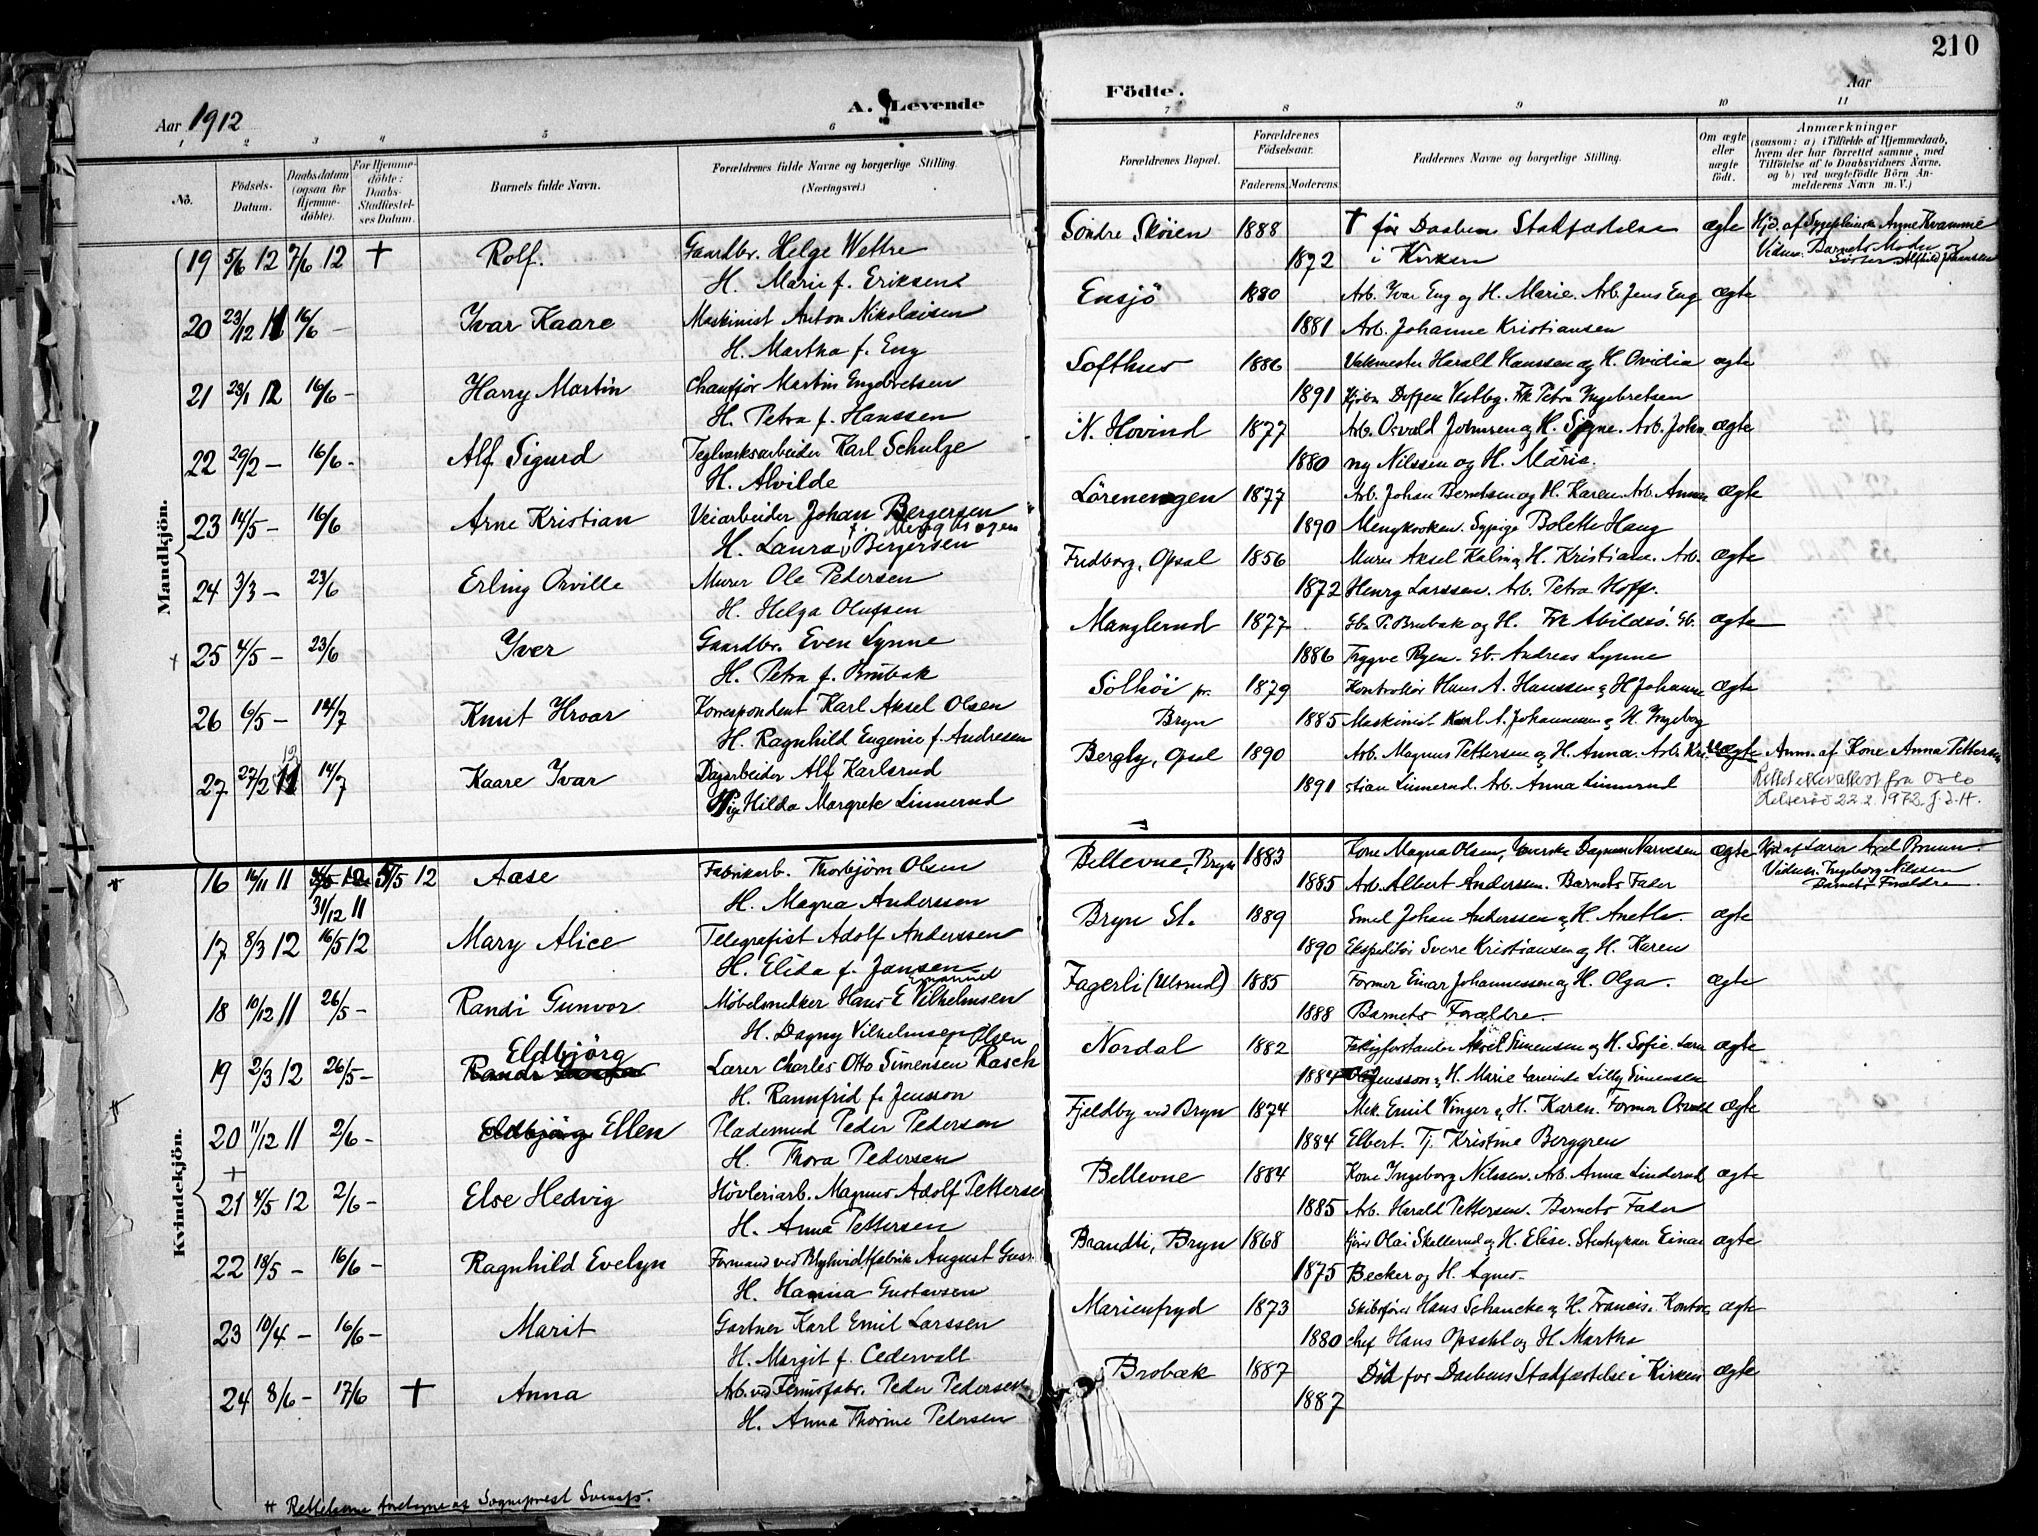 210
Aar 1912
A. Levende
Födte.
Aar
1 2 3 4 5 6 7 8 9 10 11
No.
Födsels-Datum.
Daabsdatum (ogsaa for Hjemme-døbte).
For Hjemme-döbte: Daabs-Stadfæstel-ses Datum.
Barnets fulde Navn.
Forældrenes fulde Navne og borgerlige Stilling. (Næringsvei.)
Forældrenes Bopæl.
Forældrenes Födselsaar.
Faderens. Moderens.
Faddernes Navne og borgerlige Stilling.
Om ægte eller uægte födt.
Anmærkninger
(saasom: a) i Tilfælde af Hjemmedaab, hvem der har forrettet samme, med Tilföielse af to Daabsvidners Navne. og b) ved uægtefödte Börn An-melderens Navn m.V.)
Mandkjön.
19 5/6 12 7/6 12 † Rolf. Gaardbr. Helge Wettre Söndre Sköien 1888 † før Daabens Stadfæstelse ægte Hjd. af Sygepleierske Anne Kvamme
H. Marie f. Eriksen 1892 i Kirken Vidner: Barnets Moder og
20 23/12 11 16/6 – Ivar Kaare Maskinist Anton Nikolaisen Ensjö 1880 Arb. Ivar Eng og H. Marie. Arb. Jens Eng ægte
H. Martha f. Eng 1881 Arb. Johanne Kristiansen
21 23/1 12 16/6 – Harry Martin Chauffør Martin Engebretsen Softhus 1886 Harald Hanssen og H. Ovidia ægte
H. Petra f. Hanssen 1891 Vestby. Frk Petra Ingebretsen
22 29/2 – 16/6 – Alf Sigurd Teglverksarbeider Karl Schulze N. Hovind 1877 Arb. Osvald Johnsen og H. Signe. Arb. John ægte
H. Alvilde 1880 ny Nilssen og H. Marie.
23 14/5 – 16/6 Arne Kristian Veiarbeider Johan Bergersen Lörenvangen 1877 Arb. Johan Berntsen og H. Karen. Arb. Anna ægte
H. Laura Bergersen 1890 Sypige Bolette Haug
24 3/3 – 23/6 Erling Orville Murer Ole Pedersen Fredborg, Opsal 1856 Murer Aksel Kalin og H. Kristiane. Arb. ægte
H. Helga Olufsen 1872 Henry Larssen. Arb. Petra Hoff.
25 4/5 – 23/6 Iver Gaardbr. Even Lynne Manglerud 1877 Gb. P. Brubak og H. Frk Abildsö. Gb. ægte
H. Petra f. Brubak 1886 Trygve Ryen. Gb. Andreas Lynne
26 6/5 – 14/7 Knut Hroar Korrespondent Karl Aksel Olsen Solhöi pr. 1879 Kontrollör Hans A. Hanssen og H Johanne ægte
H. Ragnhild Eugenie f. Andresen Bryn 1885 Maskinist Karl A. Johannesen og H. Ingeborg
27 27/2 12 14/7 Kaare Ivar Dagarbeider Alf Karlsrud Bergly, Opsal 1890 Arb. Magnus Pettersen og H. Anna. Arb. Kri- uægte Anm. af Kone Anna Pettersen
Pige Hilda Margrete Linnerud 1891 stian Linnerud. Arb. Anna Linnerud Rettet etter attest fra Oslo
Helseråd 22.2.1972. J.I.H.
Kvindekjön.
16 14/11 11 31/12 11 5/5 12 Aase Fabrikarb. Thorbjörn Olsen Bellevue, Bryn 1883 Kone Magna Olsen, Dagmar Narvesen ægte Hjd. af Lærer Axel Bruun.
H. Magna Anderssen 1885 Arb. Albert Anderssen. Barnets Fader Vidner: Ingeborg Nilssen
Barnets Forældre
17 8/3 12 16/5 12 Mary Alice Telegrafist Adolf Anderssen Bryn St. 1889 Smed Johan Anderssen og H. Anette. ægte
H. Elida f. Jansen 1890 Ekspeditör Sverre Kristiansen og H. Karen
18 10/12 11 26/5 – Randi Gunvor Møbelsnedker Hans E. Vilhelmsen Fagerli (Ulsrud) 1885 Former Einar Johannessen og H. Olga. ægte
H. Dagny Vilhelmsen Olsen 1888 Barnets Forældre.
19 2/3 12 26/5 – Eldbjörg Lærer Charles Otto Simensen Rasch Nordal 1882 Aksel Simensen og H. Sofie. Lærer ægte
H. Rannfrid f. Jensson 1884 Jensson og H. Marie Lærerinde Lilly Simensen
20 11/12 11 2/6 – Eldbjörg Ellen Pladesmed Peder Pedersen Fjeldby ved Bryn 1874 Mek. Emil Vinger og H. Karen. Former Osvald ægte
H. Thora Pedersen 1884 Elbert. Tj. Kristine Berggren
21 4/5 12 2/6 – Else Hedvig Høvleriarb. Magnus Adolf Pettersen Bellevue 1884 Kone Ingeborg Nilssen. Arb. Anna Linderud ægte
H. Anna Pettersen 1885 Arb. Harald Pettersen. Barnets Fader
22 18/5 – 16/6 – Ragnhild Evelyn Formand ved Blyhvidtfabrik August Gust. Brandti, Bryn 1868 Olai Skellerud og H. Elise. Einar ægte
H. Hanna Gustavsen 1875 Becker og H. Agnes.
23 10/4 – 16/6 – Marit Gartner Karl Emil Larssen Marienfryd 1873 Skibsfører Hans Schancke og H. Francis. Kontor ægte
H. Margit f. Cedervall 1880 chef Hans Opsahl og H Martha
24 8/6 – 17/6 † Anna Arb. ved Fernisfabr. Peder Pedersen Brobæk 1887 Död for Daabens Stadfæstelse i Kirken ægte
H. Anna Thorine Pedersen 1887
# Rettelserne foretagne af Sogneprest